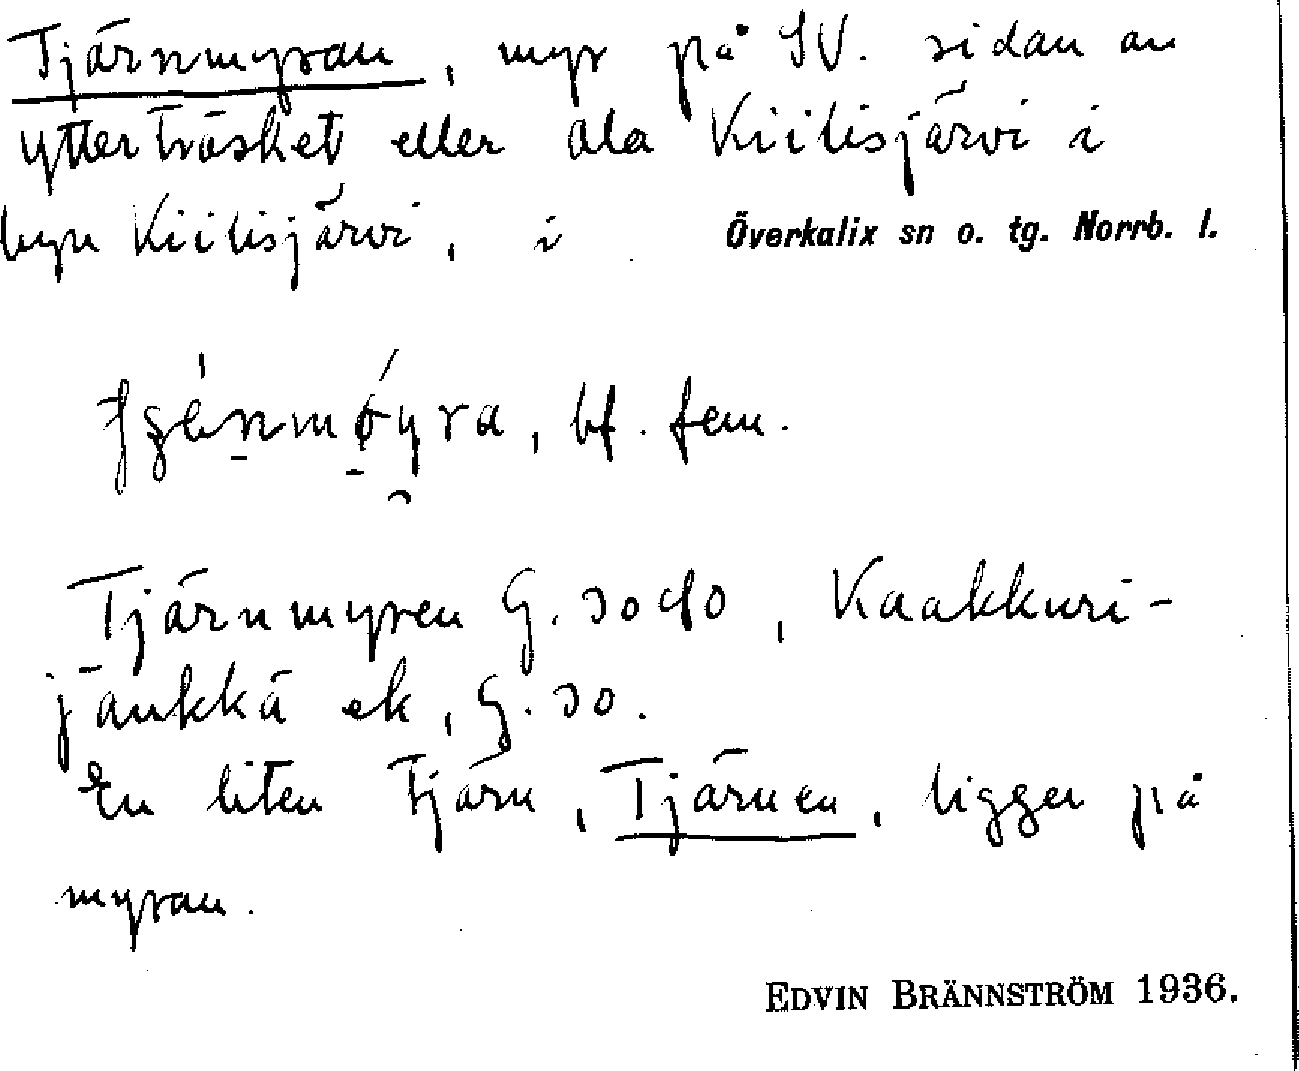 Tjärnmyran, myr på SV. sidan av
ytterträsket eller Ala Kiilisjärvi i
byn Kiilisjärvi, i Överkalix sn o. tg. Norrb. l.
bf. fem.
Tjärnmyren G. Kaakkuri-
jänkkä ek, G. 30.
En liten tjärn, Tjärnen, ligger på
myran.
EDVIN BRÄNNSTRÖM 1936.